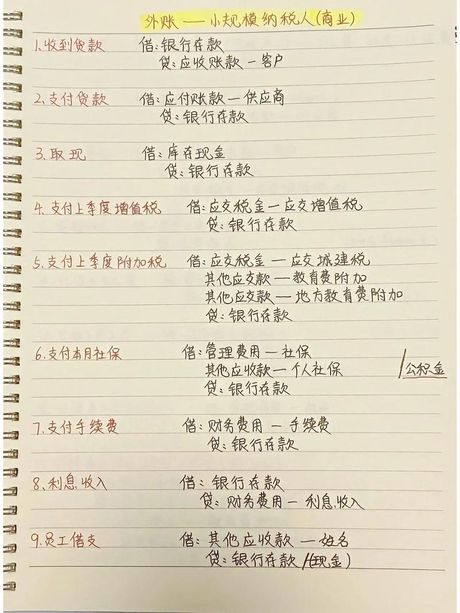 外账 — 小规模纳税人(商业)
1.收到货款 借:银行存款
贷:应收账款—客户
2.支付货款 借:应付账款—供应商
贷:银行存款
3.取现 借:库存现金
贷:银行存款
4.支付上季度增值税 借:应交税金—应交增值税
贷:银行存款
5.支付上季度附加税 借:应交税金—应交城建税
其他应交款—教育费附加
其他应交款—地方教育费附加
贷:银行存款
6.支付本月社保 借:管理费用—社保
其他应收款—个人社保 /公积金
贷:银行存款
7.支付手续费 借:财务费用—手续费
贷:银行存款
8.利息收入 借:银行存款
贷:财务费用—利息收入
9.员工借支 借:其他应收款—姓名
贷:银行存款/(现金)